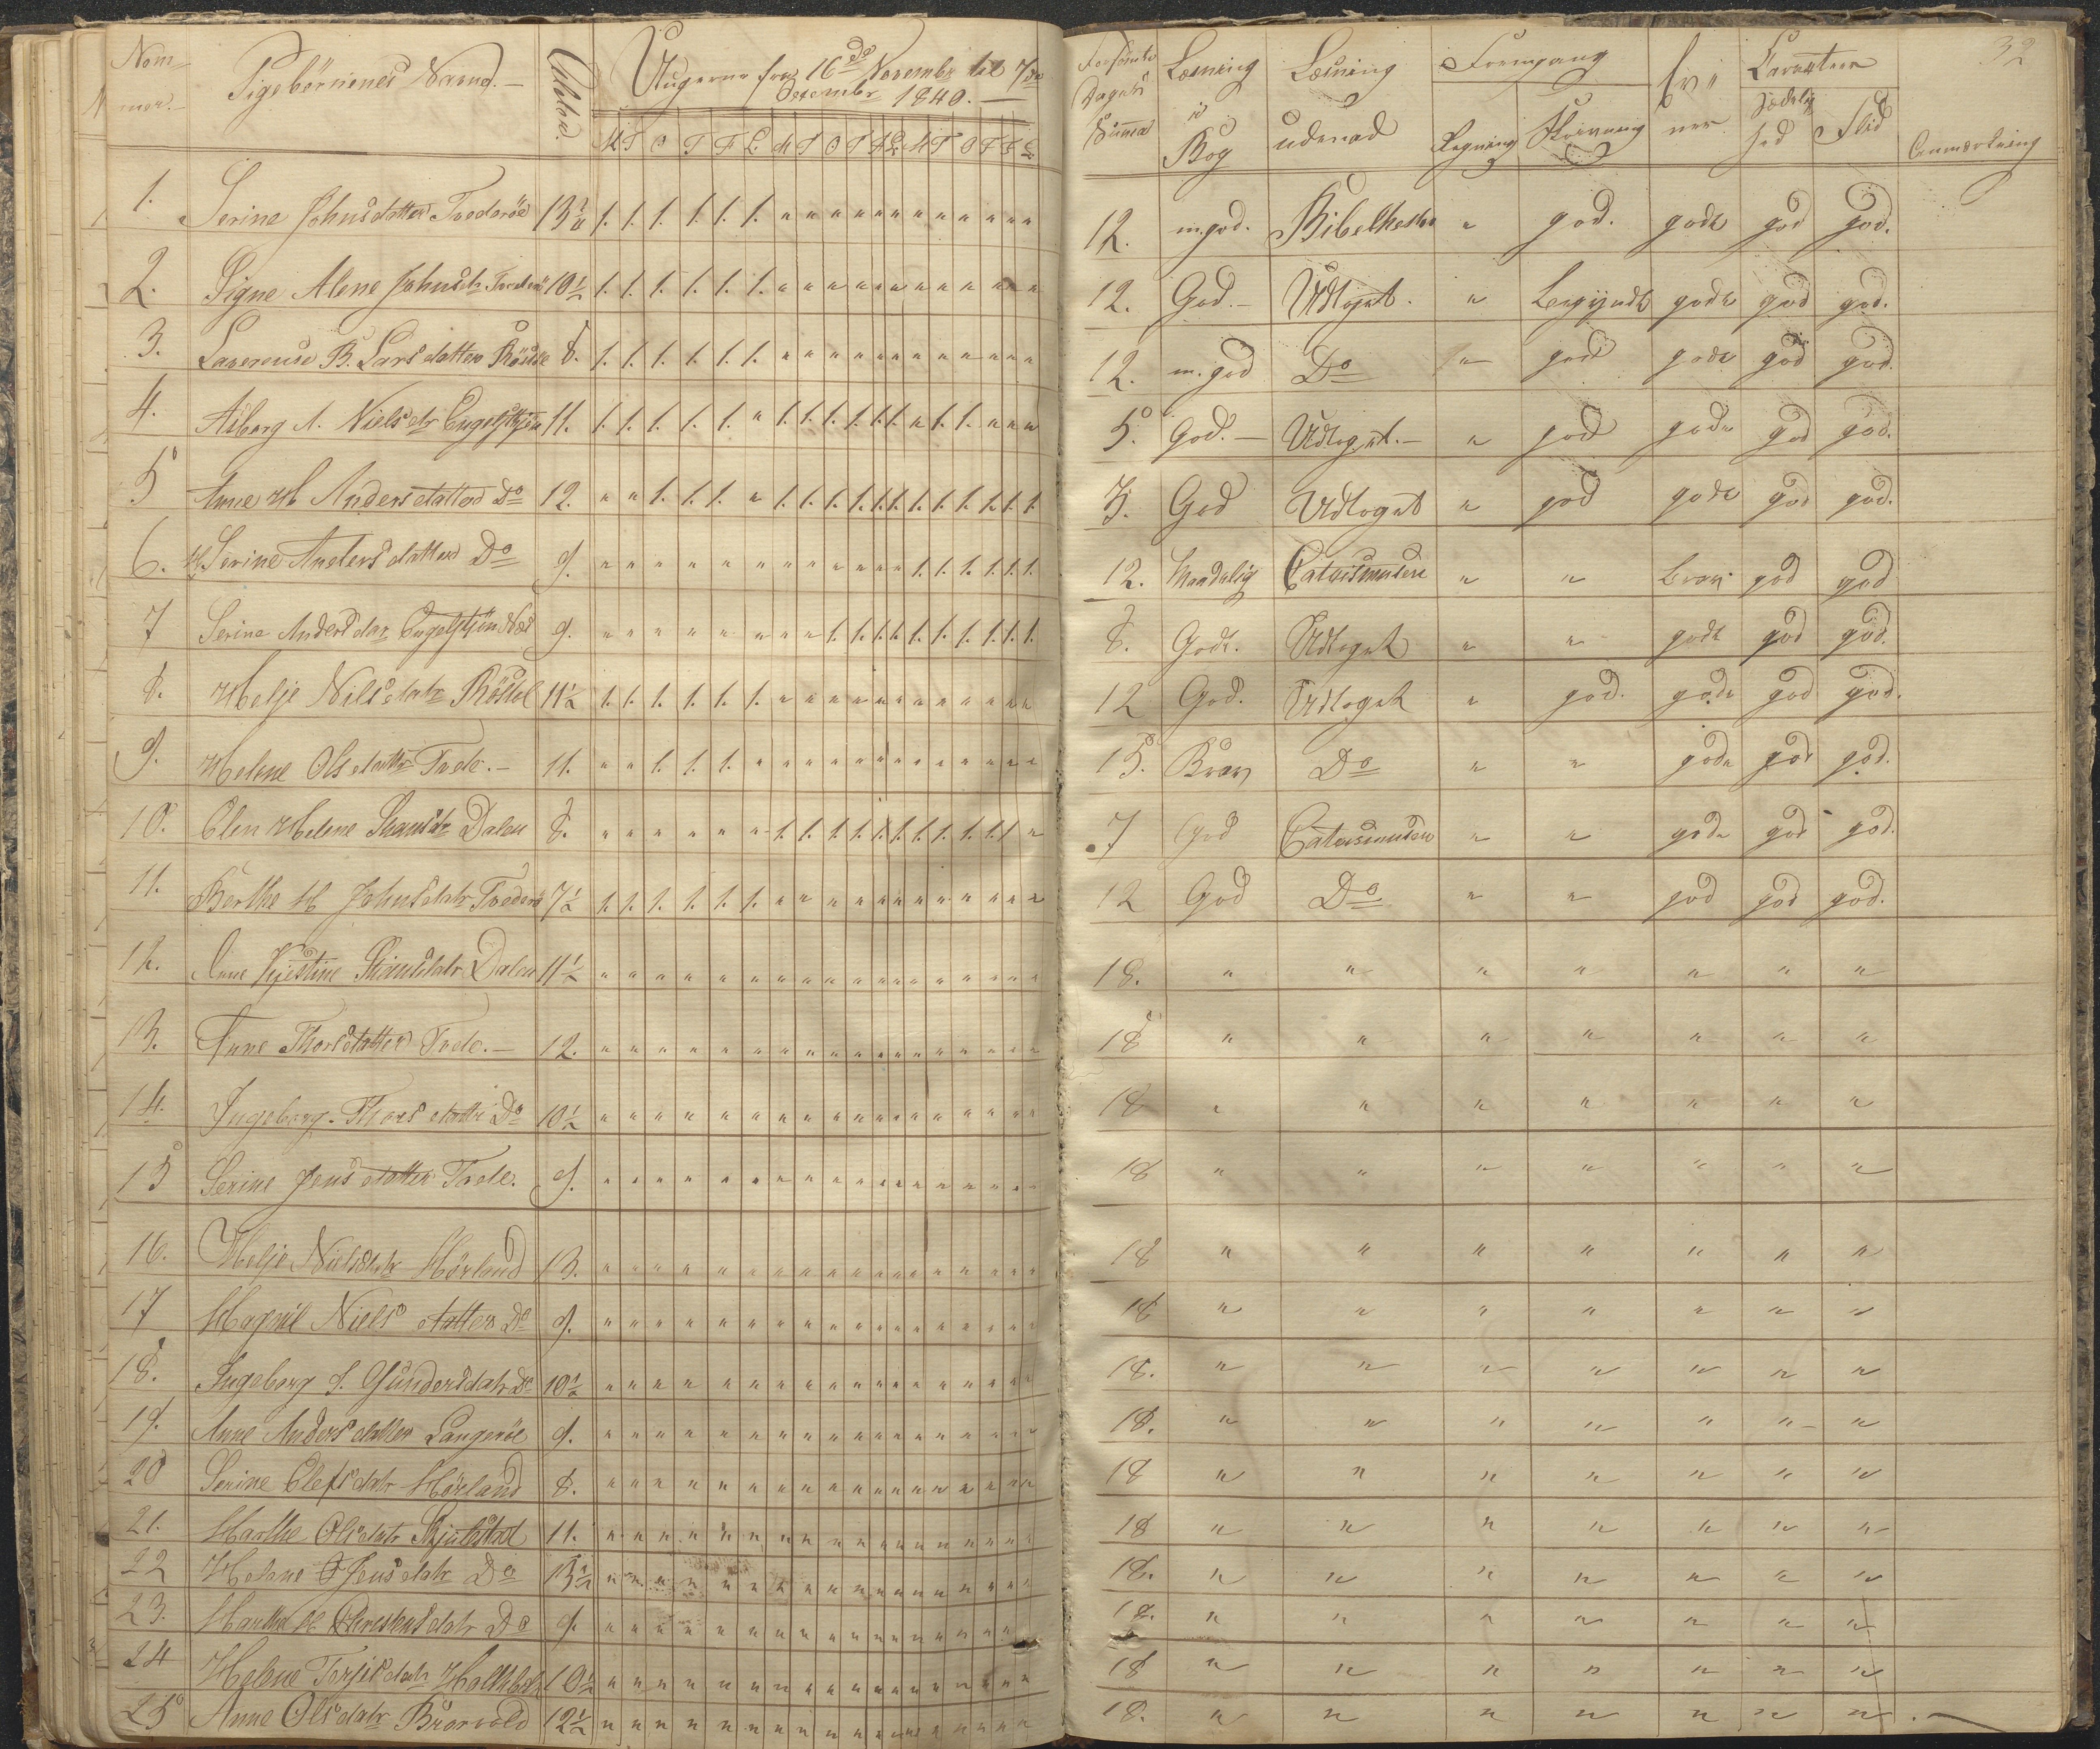 32
Nom mer. Pigebörnenes Navne. Alder. Ugerne fra 16de November til 7de Desembr 1840. Forsømte Dages Summa Læsning i Bog Læsning udenad Fremgang Regning Skrivning Evner Caracteer Sædelighed Flid Anmærkning
M T O T F L M T O T F L M T O T F L
1. Serine Johnsdatter Tvederöe 13½ 1. 1. 1. 1. 1. 1. " " " " " " " " " " " " 12. m.god. Bibelhesto " god. gode god god.
2. Signe Alene Johnsdtr Tvederöe 10½ 1. 1. 1. 1. 1. 1. " " " " " " " " " " " " 12. God.- Udlagt. " Begyndt gode god god.
3. Laverense B. Larsdatter Röstöl 8. 1. 1. 1. 1. 1. 1. " " " " " " " " " " " " 12. m. god Do " god gode god god.
4. Asborg A. Nielsdtr Engelstjøn 11. 1. 1. 1. 1. 1. " 1. 1. 1. 1. 1. 1. " 1. 1. " " " 5. God.- Udlagt.- " god gode god god.
5 Anne M Andersdatter Do 12. " " 1. 1. 1. " 1. 1. 1. 1. 1. 1. 1. 1. 1. 1. 1. 1. 3. God Udlagt " god gode god god.
6. Serine Andersdatter Do 9. " " " " " " " " " " " " 1. 1. 1. 1. 1. 1. 12. Maadelig Catechismusen " " Brav god god
7 Serine Andersdtr Engelstjøn 9. " " " " " " " " 1. 1. 1. 1. 1. 1. 1. 1. 1. 1. 8. Godt. Udlagt " " gode god god.
8. Helje Nilsdatr Röstöl 11½ 1. 1. 1. 1. 1. 1. " " " " " " " " " " " " 12 God. Udlagt " god. gode god god.
9. Helene Olsdatter Tvede.- 11. " " 1. 1. 1. " " " " " " " " " " " " " 15. Brav Do " " gode god god.
10. Elen Helene Dalen 8. " " " " " " 1. 1. 1. 1. 1. 1. 1. 1. 1. 1. 1 " 7 God Catechismusen " " gode god god.
11. Berthe M Johnsdatr Tvederöe 7½ 1. 1. 1. 1. 1. 1. " " " " " " " " " " " " 12 God Do " " god god god.
12. Anne Kjestine Dalen 11½ " " " " " " " " " " " " " " " " " " 18. " " " " " " "
13. Anne Thorsdatter Tvede.- 12. " " " " " " " " " " " " " " " " " " 18 " " " " " " "
14. Ingeborg Thorsdatter Do 10½ " " " " " " " " " " " " " " " " " " 18 " " " " " " "
15 Serine Jensdatter Tvede. 9. " " " " " " " " " " " " " " " " " " 18 " " " " " " "
16. Helje Nielsdatr Hörland 13. " " " " " " " " " " " " " " " " " " 18 " " " " " " "
17 Magnil Nielsdatter Do 9. " " " " " " " " " " " " " " " " " " 18 " " " " " " "
18. Ingeborg S. Gundersdatr Do 10½ " " " " " " " " " " " " " " " " " " 18. " " " " " " "
19. Anne Andersdatter Langeröe 9. " " " " " " " " " " " " " " " " " " 18. " " " " " " "
20 Serine Olefsdatr Hörland 8. " " " " " " " " " " " " " " " " " " 18 " " " " " " "
21. Marthe Olsdatr Skjulestad 11. " " " " " " " " " " " " " " " " " " 18 " " " " " " "
22 Helene O Jensdatr Do 13½ " " " " " " " " " " " " " " " " " " 18. " " " " " " "
23. Marthe M Do 9. " " " " " " " " " " " " " " " " " " 18. " " " " " " "
24 Helene Terjisdatr 10½ " " " " " " " " " " " " " " " " " " 18 " " " " " " "
25 Anne Olsdatr Brørvold 12½ " " " " " " " " " " " " " " " " " " 18. " " " " " " "